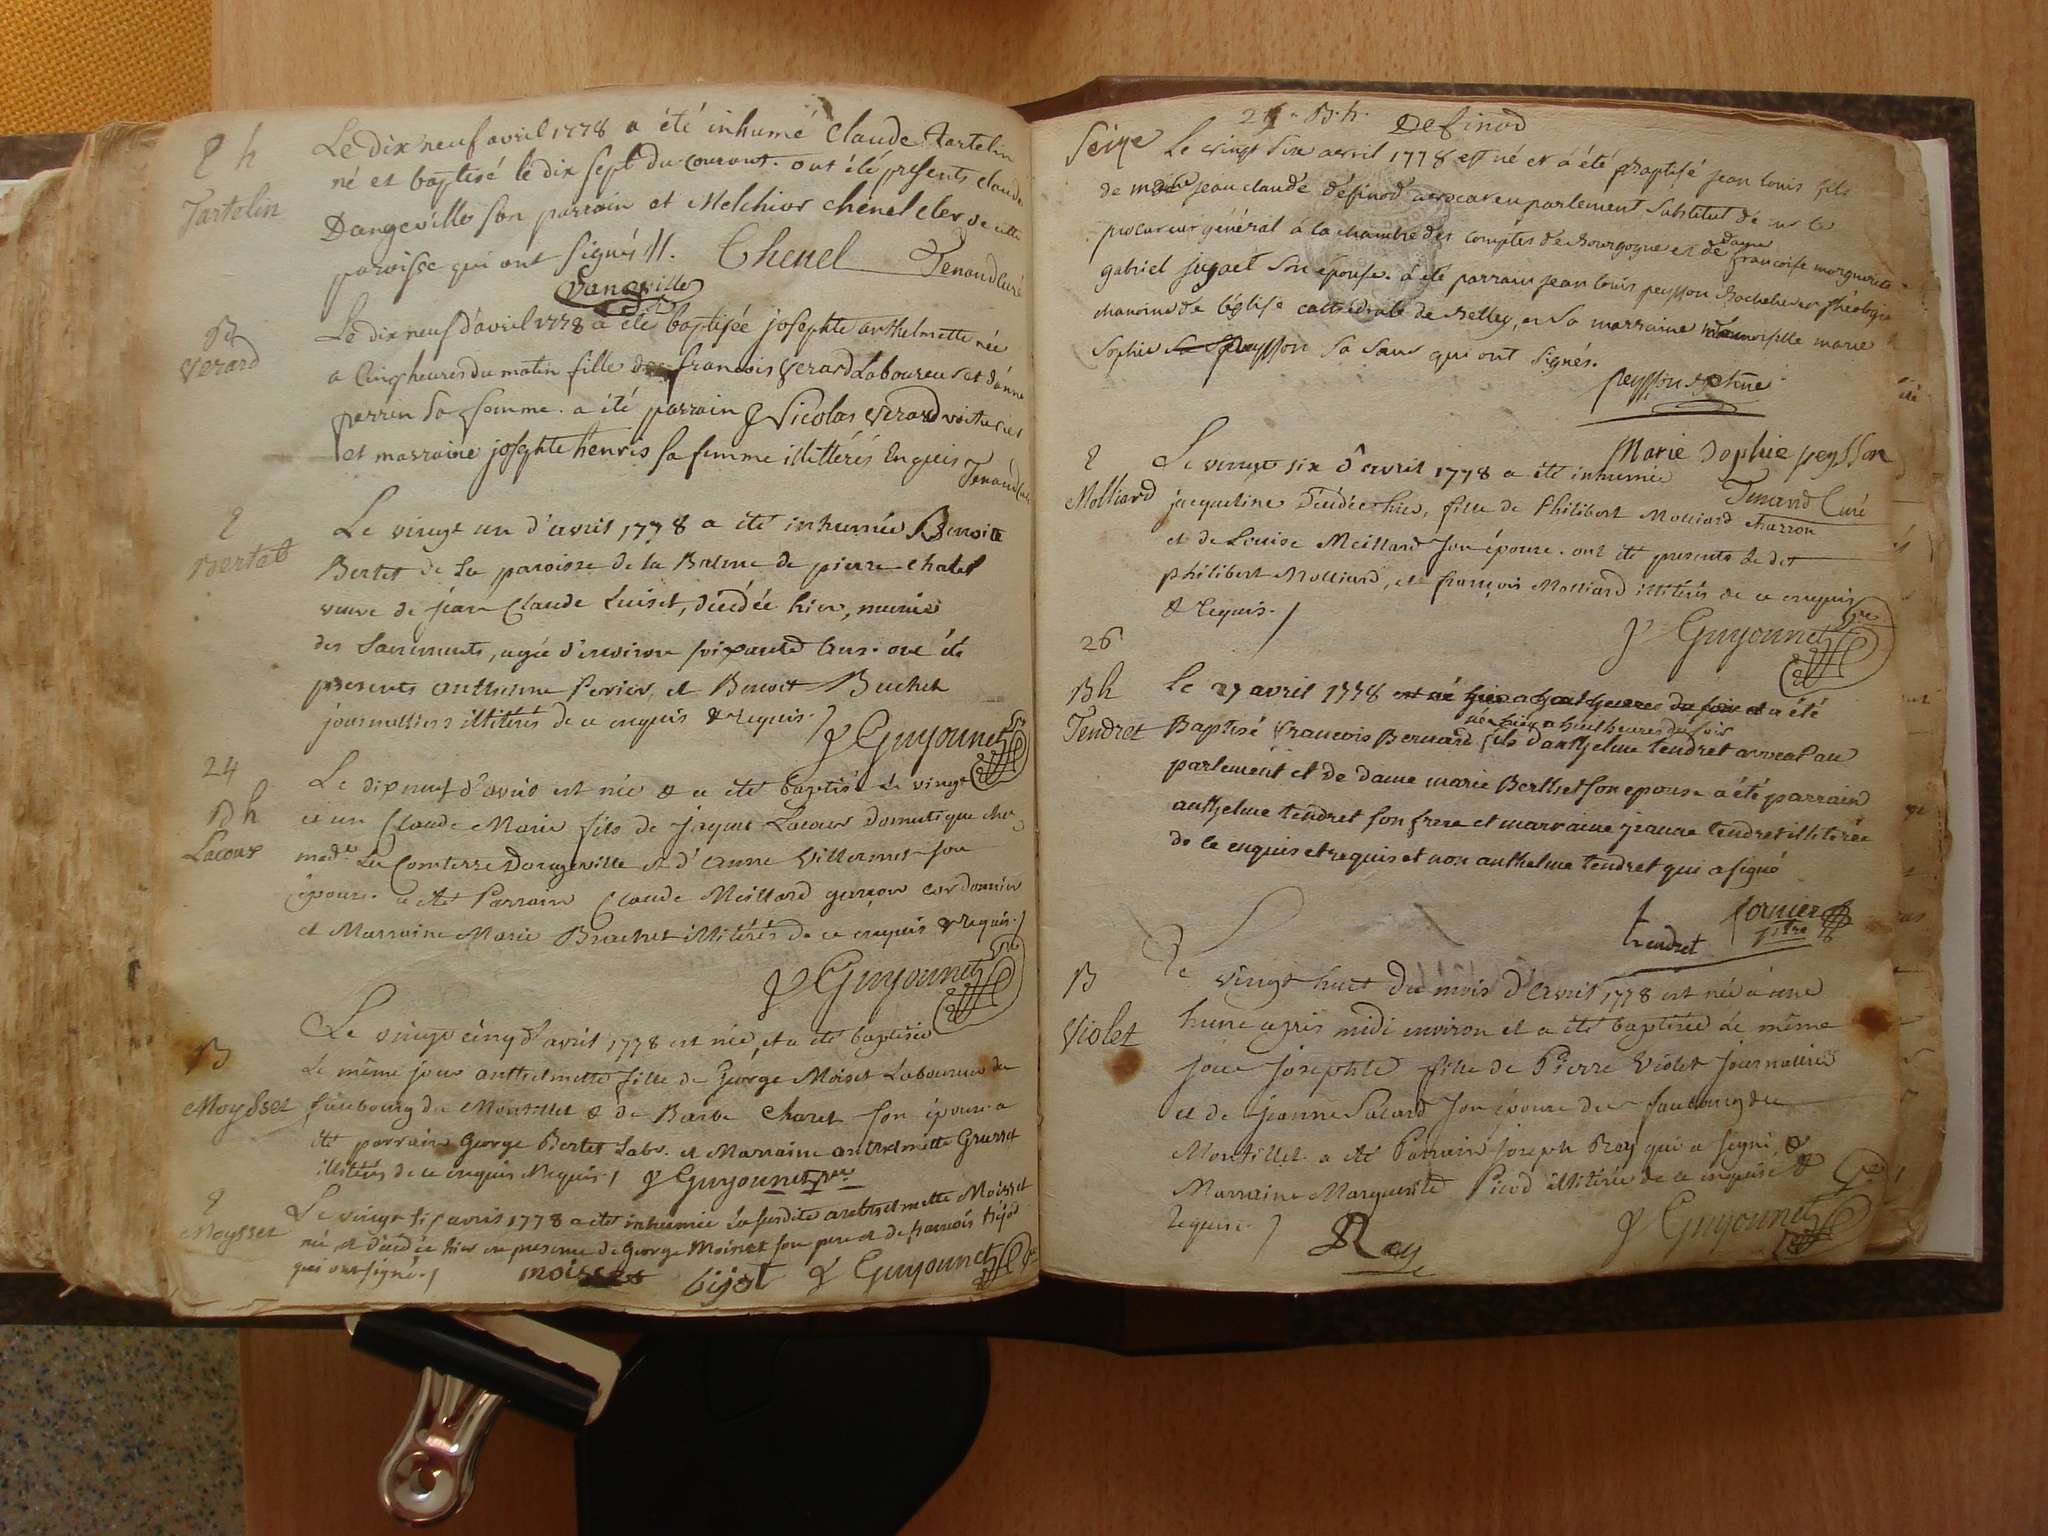 Le dix neuf avril 1778 a été inhumé Claude Tartelin
Tartelin
né et baptisé le dix sept du courant. ont été presents claude
Dangeville son parrain et Melchior chenel clerc de cette
paroisse qui ont signés //. Chenel Tenand Curé
Dangeville
B
Verard
Le dix neuf d'avril 1778 a été baptisée josephte anthelmette née
a cinq heures du matin fille de francois verard Laboureur et d'anne
perrin sa femme. a été parrain Nicolas verard
et marraine josephte henris sa femme illittérés Enquis
Tenand Curé
Bertet
Le vingt un d'avril 1778 a été inhumée Benoite
Bertet de la paroisse de la Balme de pierre chatel
veuve de jean Claude Luiset, décédée hier, munie
des Sacrements, agée d'environ soixante ans. ont été
presents anthelme Perier, et Benoit Buchet
journalliers illitérés de ce enquis & requis. /
Guyonnet
24
B h
Lacour
Le dix neuf d'avril est née & a été baptisé le vingt
et un Claude Marie fils de jaques Lacour Domestique chez
made La Comtesse Dangeville & d'anne Villermet son
épouse. a été Parrain Claude Meillard garçon cordonnier
et Marraine Marie Brachet illitérés de ce enquis & requis. /
Guyonnet
B
Moysset
Le vingt cinq d'avril 1778 est née, et a été baptisée
Le même jour anthelmette fille de George Moiset Laboureur du
faubourg du Montillet & de Barbe Charet son épouse. a
été parrain George Bertet Labr. et Marraine anthelmette Grusset
illitérés de ce enquis Requis. / Guyonnet
Moysset
Le vingt six avril 1778 a été inhumée La susdite anthelmette Moisset
née & décédée hier en presence de George Moisset son pere & de francois bijot
qui ont signé. / moisset bijot Guyonnet
B. h. Definod
Seize
Le vingt six avril 1778 est né et à été Baptisé jean louis fils
de jean claude définod avocat en parlement Substitut de mr le
procureur général à la chambre des comptes de Bourgogne et de dame francoise marguerite
gabriel jugaet son épouse. à été parrain jean louis peysson Bachelier en théologie
chanoine de l'église cathédrale de Belley, et sa marraine mademoiselle marie
Sophie peysson sa sœur qui ont signés.
peysson
Marie Sophie peysson
Tenand Curé
Molliard
Le vingt six d'avril 1778 a été inhumée
jacqueline Décédée hier, fille de Philibert Molliard charron
et de Louise Meillard son épouse. ont été presents le dit
philibert Molliard, et françois Molliard illitérés de ce enquis
& requis. /
Guyonnet
26
B h
Tendret
Le 27 avril 1778 est né hier a huit heures du soir et a été
né hier a huit heures du soir
Baptisé francois Bernard fils d'anthelme tendret avocat au
parlement et de dame marie Berthet son epouse a été parrain
anthelme tendret son frere et marraine jeanne tendret illiterée
de ce enquis et requis et non anthelme tendret qui a signé
tendret
B
Violet
Le vingt huit du mois d'avril 1778 est née à une
heure après midi environ et a été baptisée Le même
jour josephte fille de Pierre Violet journalier
et de jeanne Savard son épouse du faubourg du
Montillet. a été Parrain joseph Rey qui a signé, &
Marraine Marguerite Picod illitérée de ce enquise &
requise. /
Rey
Guyonnet